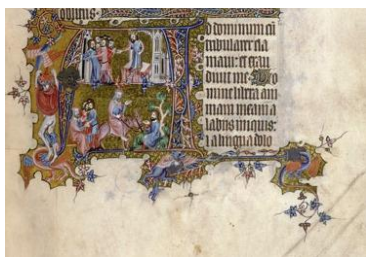 dominus.
Ad dominum cū
tribularer cla
maui: et exau
diuit me. Do
mine libera ani
mam meam a
labiis iniquis:
a lingua dolo